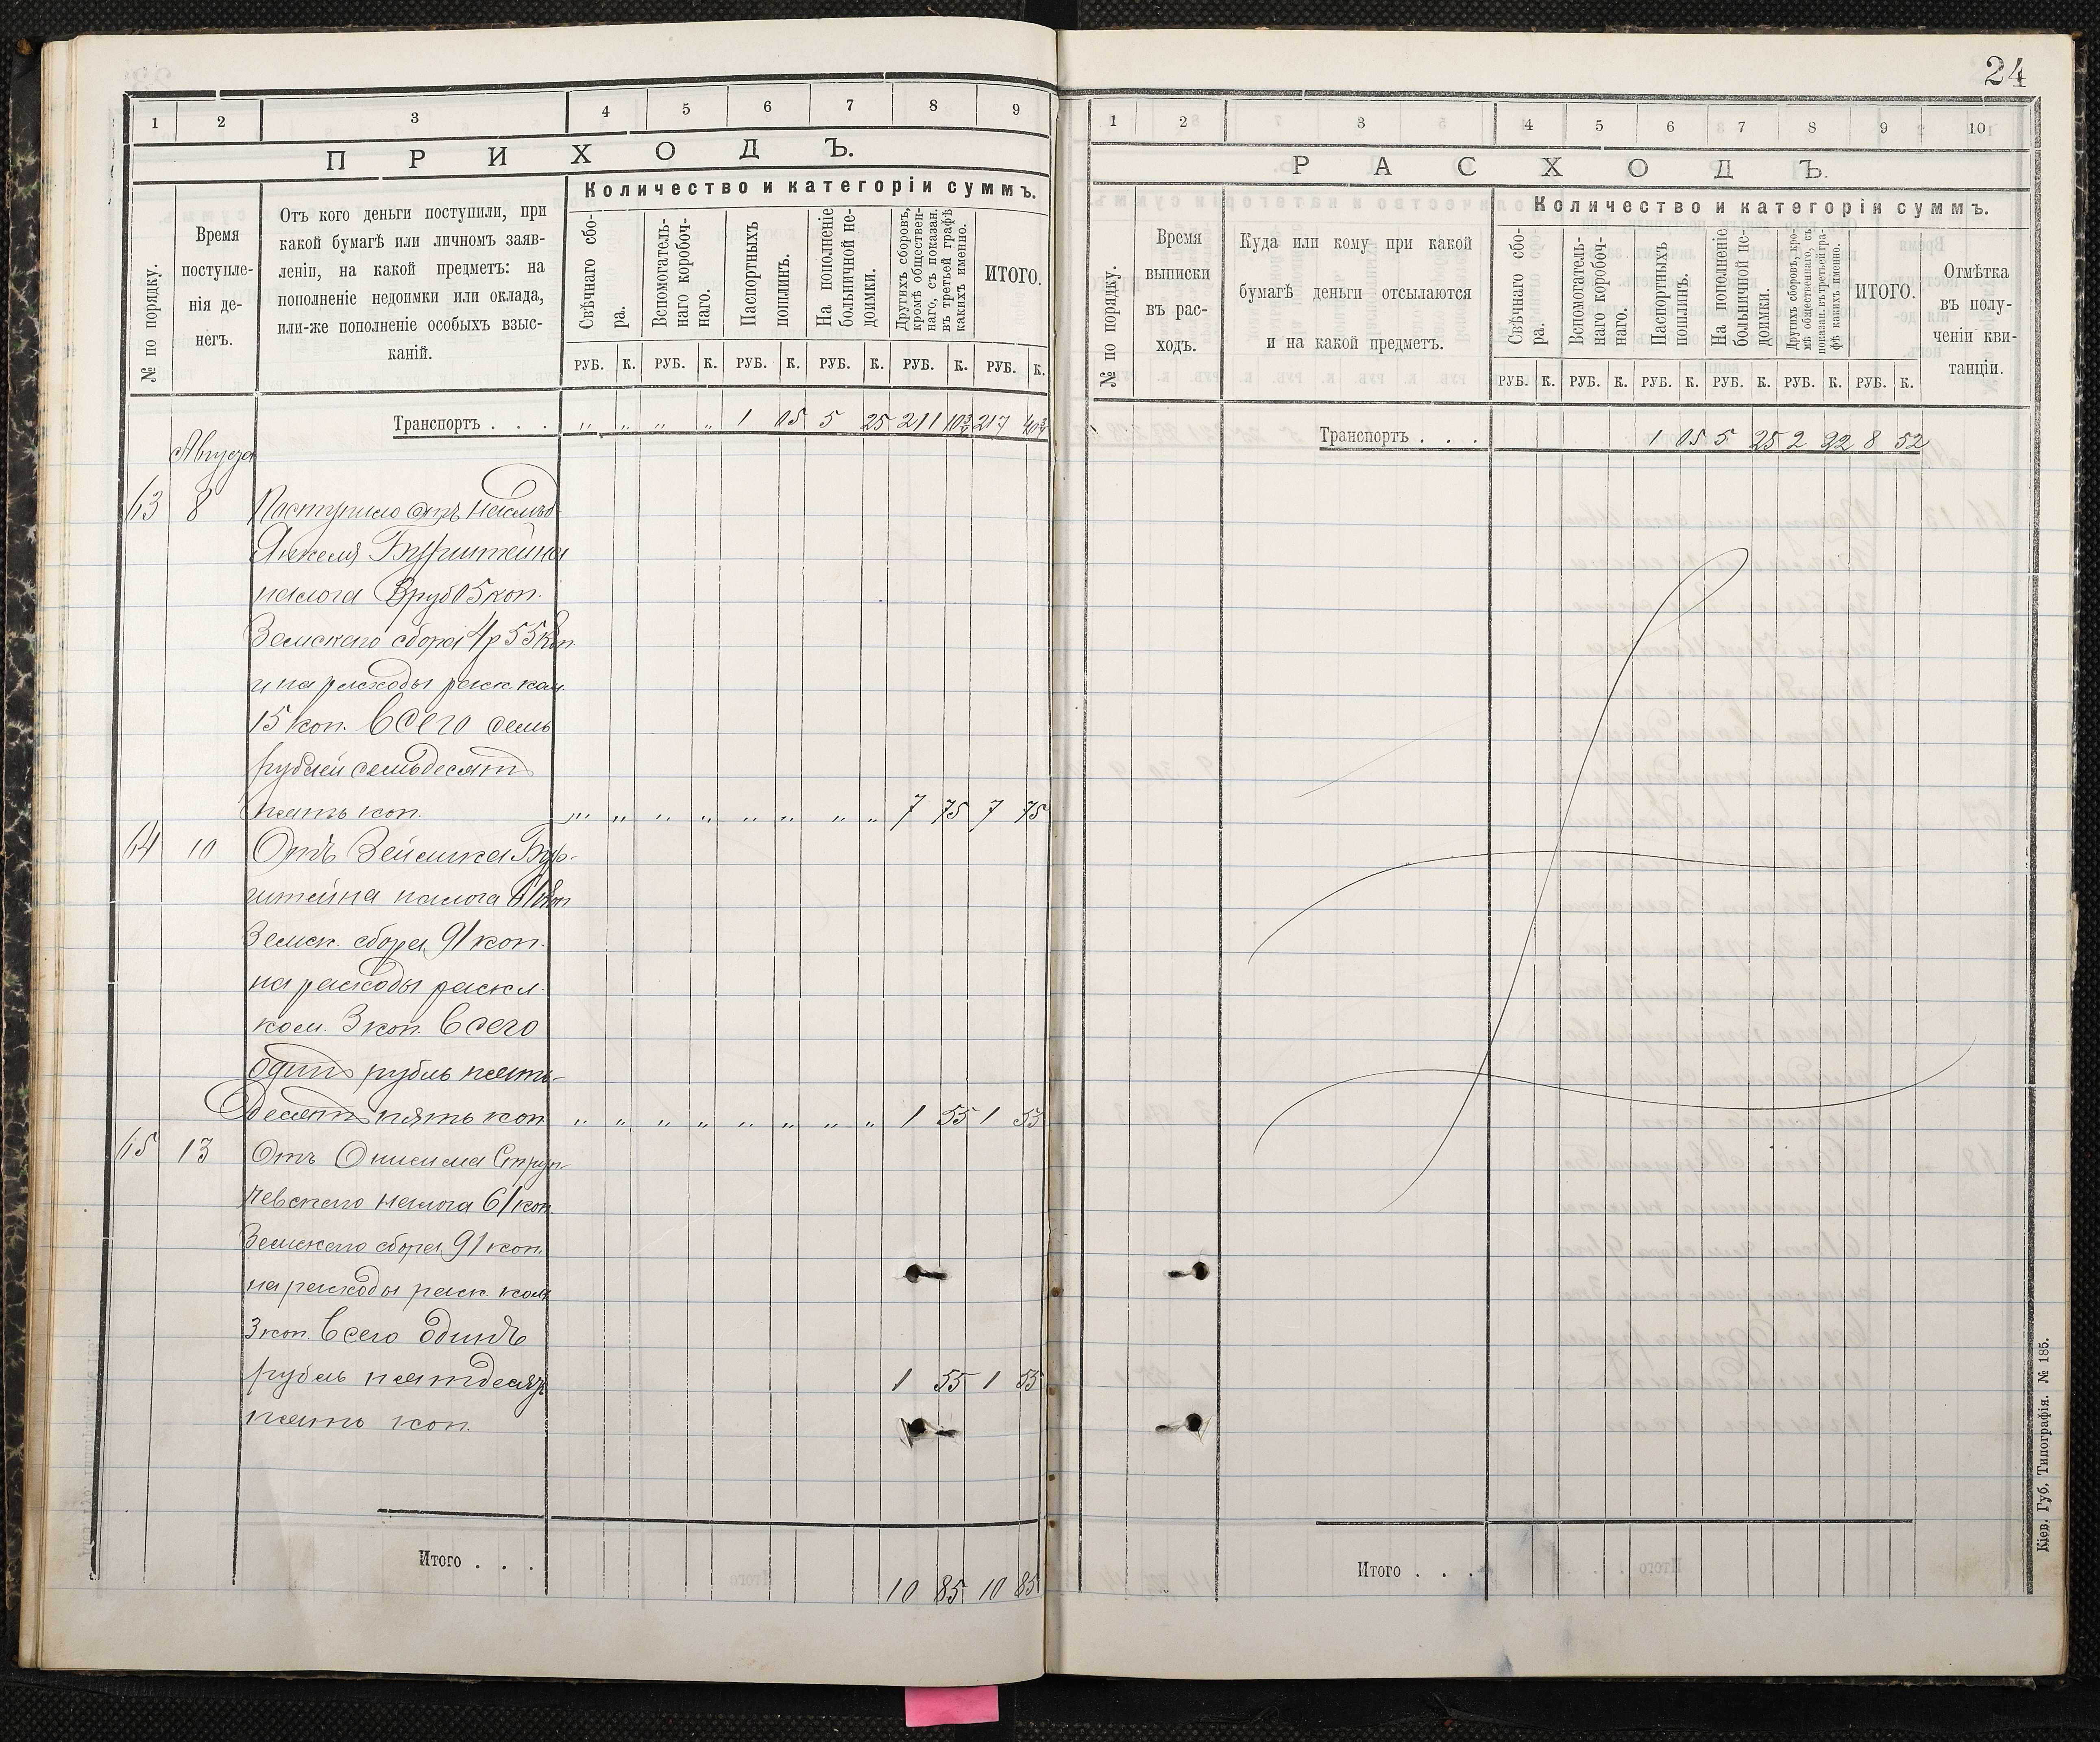 1 2 3 4 5 6 7 8 9
ПРИХОДЪ.
№ по порядку.
Время
поступле-
нія де-
негъ.
Отъ кого деньги поступили, при
какой бумагѣ или личномъ заяв-
леніи, на какой предметъ: на
пополненіе недоимки или оклада,
или-же пополненіе особыхъ взыс-
каній.
Количество и категоріи суммъ.
Свѣчнаго сбо-
ра.
Вспомогатель-
наго коробоч-
наго.
Паспортныхъ
пошлинъ.
На пополненіе
больничной не-
доимки.
Другихъ сборовъ,
кромѣ обществен-
наго, съ показан.
въ третьей графѣ
какихъ именно.
ИТОГО.
РУБ. К. РУБ. К. РУБ. К. РУБ. К. РУБ. К. РУБ. К.
Транспортъ . . . „ „ „ „ 1 05 5 25 211 10¾ 217 40¾
Августа
63 8 Поступило отъ наслѣд
Янкеля Бурштейна
налога 3 руб 05 коп.
Земскаго сбора 4 р 55 коп.
и на расходы раск. ком.
15 коп. Всего семь
рублей семьдесятъ
пять коп. „ „ „ „ „ „ „ „ 7 75 7 75
64 10 Отъ Зейлика Бур-
штейна налога 61 коп
Земск. сбора 91 коп.
на расходы раскл.
ком. 3 коп. Всего
одинъ рубль пять-
десятъ пять коп „ „ „ „ „ „ „ „ 1 55 1 55
65 13 Отъ Онисима
налога 61 коп.
Земскаго сбора 91 коп.
на расходы раск. ком
3 коп. Всего одинъ
рубль пятдесятъ 1 55 1 55
пять коп.
Итого . . . 10 85 10 85
24
1 2 3 4 5 6 7 8 9 10
РАСХОДЪ.
№ по порядку.
Время
выписки
въ рас-
ходъ.
Куда или кому при какой
бумагѣ деньги отсылаются
и на какой предметъ.
Количество и категоріи суммъ.
Свѣчнаго сбо-
ра.
Вспомогатель-
наго коробоч-
наго.
Паспортныхъ
пошлинъ.
На пополненіе
больничной не-
доимки.
Другихъ сборовъ, кро-
мѣ общественнаго, съ
показан. въ третьей гра-
фѣ какихъ именно.
ИТОГО.
Отмѣтка
въ полу-
ченіи кви-
танціи.
РУБ. К. РУБ. К. РУБ. К. РУБ. К. РУБ. К. РУБ. К.
Транспортъ . . . 1 05 5 25 2 22 8 52
Итого . . .
Кіев. Губ. Типографія. № 185.